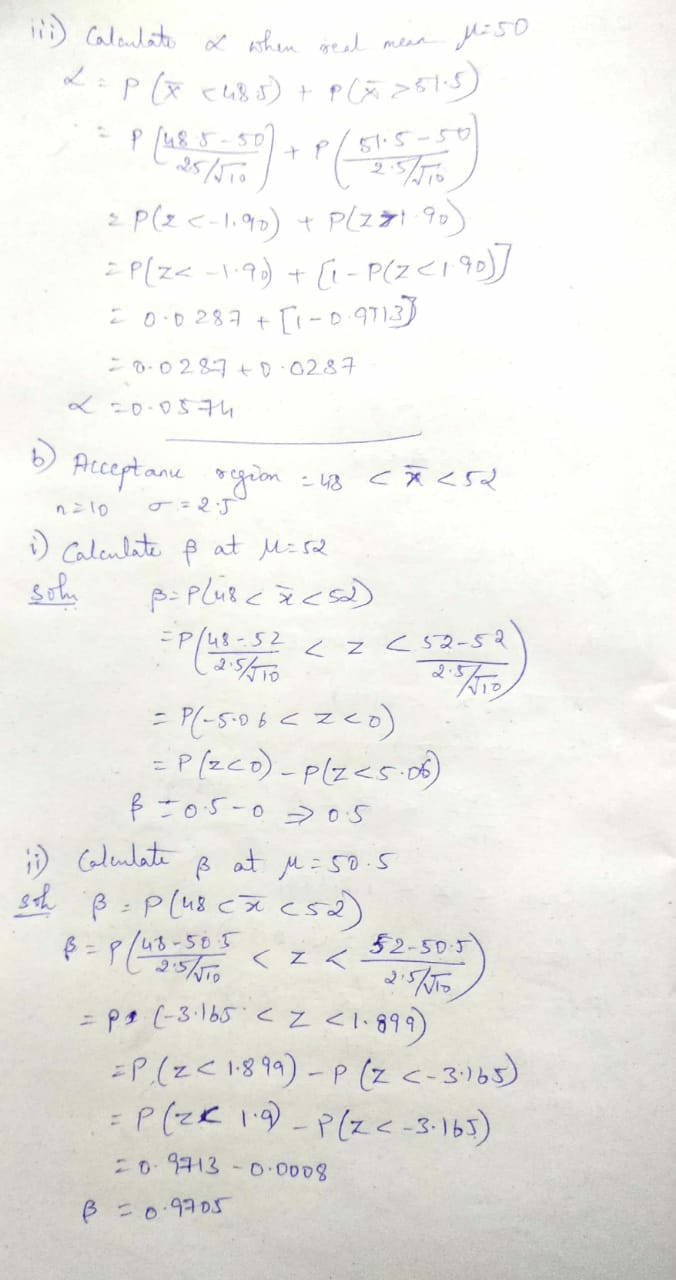 iii) Calculate α when real mean μ=50
α = P (x̄ < 48.5) + P(x̄ > 51.5)
= P (48.5-50 / 25/√10) + P (51.5-50 / 2.5/√10)
= P(z < -1.90) + P(z > 1.90)
= P(z < -1.90) + [1 - P(z < 1.90)]
= 0.0287 + [1 - 0.9713]
= 0.0287 + 0.0287
α = 0.0574
b) Acceptance region = 48 < x̄ < 52
n = 10 σ = 2.5
i) Calculate β at μ = 52
soln β = P(48 < x̄ < 52)
= P (48-52 / 2.5/√10 < z < 52-52 / 2.5/√10)
= P(-5.06 < z < 0)
= P (z<0) - P(z < 5.06)
β = 0.5 - 0 ⇒ 0.5
ii) Calculate β at μ = 50.5
soln β = P (48 < x̄ < 52)
β = P (48-50.5 / 2.5/√10 < z < 52-50.5 / 2.5/√10)
= P (-3.165 < z < 1.899)
= P (z < 1.899) - P (z < -3.165)
= P (z < 1.9) - P(z < -3.165)
= 0.9713 - 0.0008
β = 0.9705